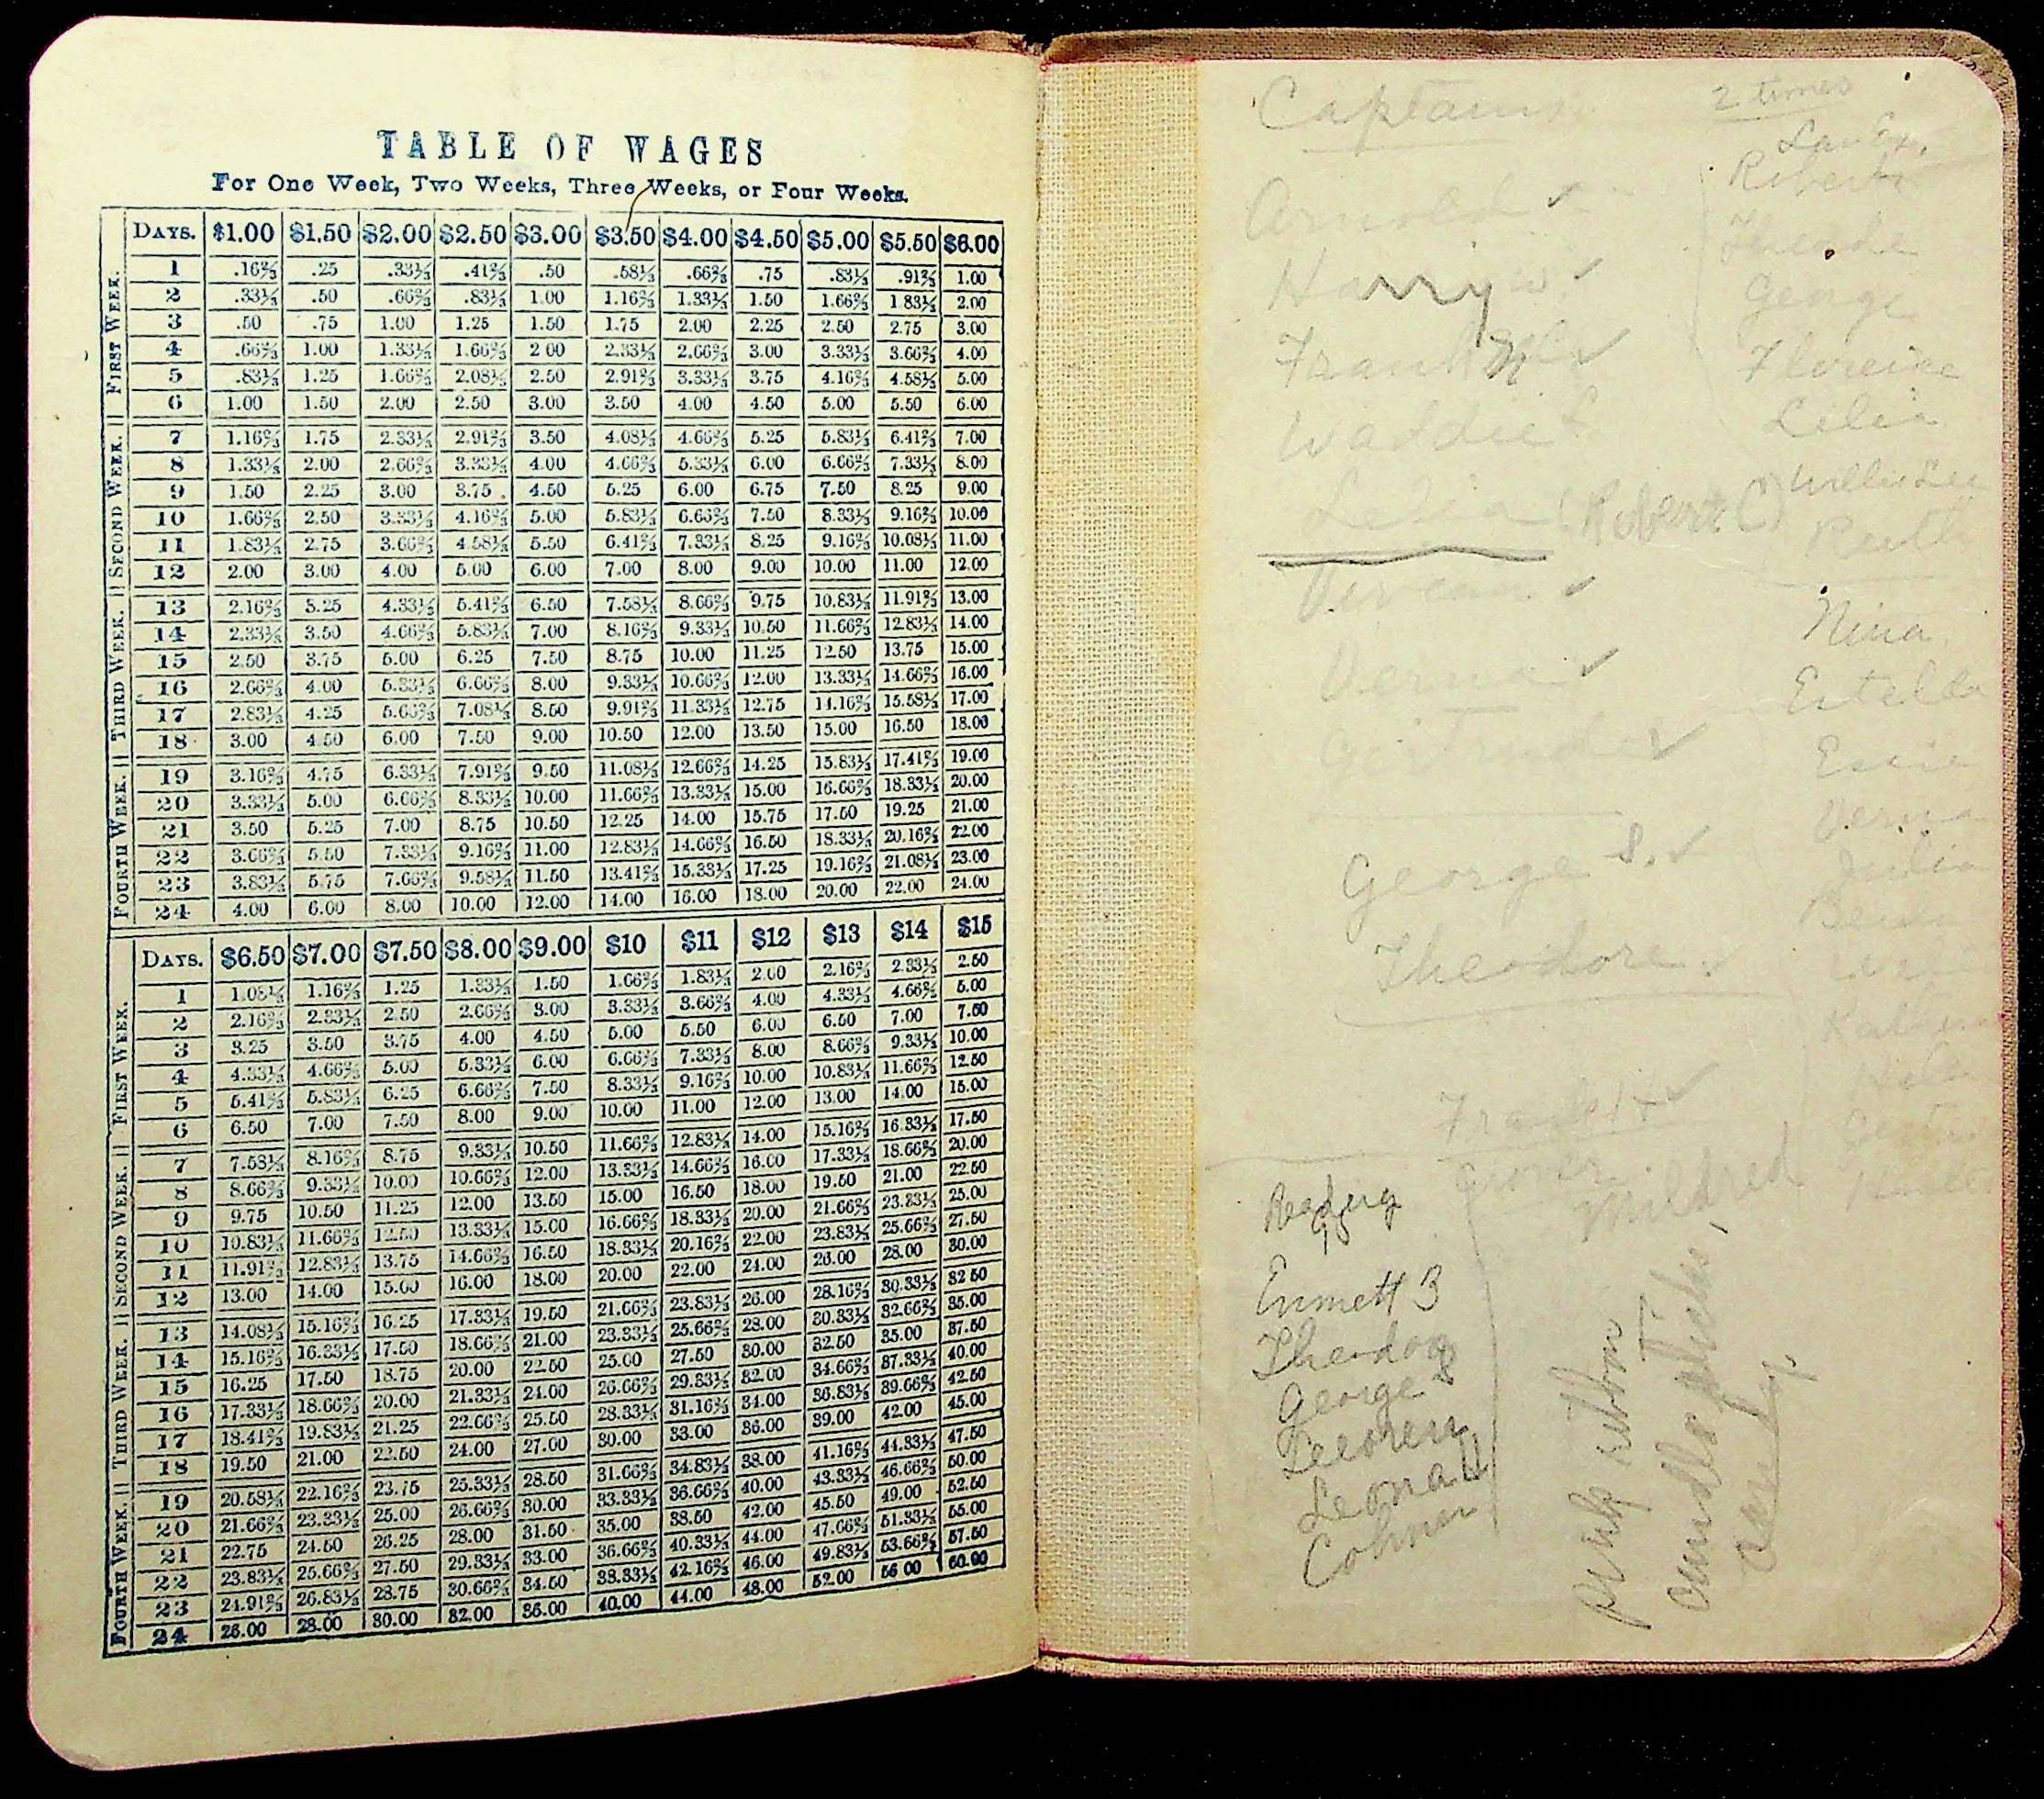 TABLE OF WAGES
For One Week, Two Weeks, Three Weeks, or Four Weeks.
DAYS. $1.00 $1.50 $2.00 $2.50 $3.00 $3.50 $4.00 $4.50 $5.00 $5.50 $6.00
FIRST WEEK.
1 .16⅔ .25 .33⅓ .41⅔ .50 .58⅓ .66⅔ .75 .83⅓ .91⅔ 1.00
2 .33⅓ .50 .66⅔ .83⅓ 1.00 1.16⅔ 1.33⅓ 1.50 1.66⅔ 1 83⅓ 2.00
3 .50 .75 1.00 1.25 1.50 1.75 2.00 2.25 2.50 2.75 3.00
4 .66⅔ 1.00 1.33⅓ 1.66⅔ 2 00 2.33⅓ 2.66⅔ 3.00 3.33⅓ 3.66⅔ 4.00
5 .83⅓ 1.25 1.66⅔ 2.08⅓ 2.50 2.91⅔ 3.33⅓ 3.75 4.16⅔ 4.58⅓ 5.00
6 1.00 1.50 2.00 2.50 3.00 3.50 4.00 4.50 5.00 5.50 6.00
SECOND WEEK.
7 1.16⅔ 1.75 2.33⅓ 2.91⅔ 3.50 4.08⅓ 4.66⅔ 5.25 5.83⅓ 6.41⅔ 7.00
8 1.33⅓ 2.00 2.66⅔ 3.33⅓ 4.00 4.66⅔ 5.33⅓ 6.00 6.66⅔ 7.33⅓ 8.00
9 1.50 2.25 3.00 3.75 4.50 5.25 6.00 6.75 7.50 8.25 9.00
10 1.66⅔ 2.50 3.33⅓ 4.16⅔ 5.00 5.83⅓ 6.66⅔ 7.50 8.33⅓ 9.16⅔ 10.00
11 1.83⅓ 2.75 3.66⅔ 4 58⅓ 5.50 6.41⅔ 7.33⅓ 8.25 9.16⅔ 10.08⅓ 11.00
12 2.00 3.00 4.00 5.00 6.00 7.00 8.00 9.00 10.00 11.00 12.00
THIRD WEEK.
13 2.16⅔ 3.25 4.33⅓ 5.41⅔ 6.50 7.58⅓ 8.66⅔ 9.75 10.83⅓ 11.91⅔ 13.00
14 2.33⅓ 3.50 4.66⅔ 5.83⅓ 7.00 8.16⅔ 9.33⅓ 10.50 11.66⅔ 12.83⅓ 14.00
15 2.50 3.75 5.00 6.25 7.50 8.75 10.00 11.25 12.50 13.75 15.00
16 2.66⅔ 4.00 5.33⅓ 6.66⅔ 8.00 9.33⅓ 10.66⅔ 12.00 13.33⅓ 14.66⅔ 16.00
17 2.83⅓ 4.25 5.66⅔ 7.08⅓ 8.50 9.91⅔ 11.33⅓ 12.75 14.16⅔ 15.58⅓ 17.00
18 3.00 4.50 6.00 7.50 9.00 10.50 12.00 13.50 15.00 16.50 18.00
FOURTH WEEK.
19 3.16⅔ 4.75 6.33⅓ 7.91⅔ 9.50 11.08⅓ 12.66⅔ 14.25 15.83⅓ 17.41⅔ 19.00
20 3.33⅓ 5.00 6.66⅔ 8.33⅓ 10.00 11.66⅔ 13.33⅓ 15.00 16.66⅔ 18.33⅓ 20.00
21 3.50 5.25 7.00 8.75 10.50 12.25 14.00 15.75 17.50 19.25 21.00
22 3.66⅔ 5.50 7.33⅓ 9.16⅔ 11.00 12.83⅓ 14.66⅔ 16.50 18.33⅓ 20.16⅔ 22.00
23 3.83⅓ 5.75 7.66⅔ 9.58⅓ 11.50 13.41⅔ 15.33⅓ 17.25 19.16⅔ 21.08⅓ 23.00
24 4.00 6.00 8.00 10.00 12.00 14.00 16.00 18.00 20.00 22.00 24.00
DAYS. $6.50 $7.00 $7.50 $8.00 $9.00 $10 $11 $12 $13 $14 $15
FIRST WEEK.
1 1.08⅓ 1.16⅔ 1.25 1.33⅓ 1.50 1.66⅔ 1.83⅓ 2.00 2.16⅔ 2.33⅓ 2.50
2 2.16⅔ 2.33⅓ 2.50 2.66⅔ 3.00 3.33⅓ 3.66⅔ 4.00 4.33⅓ 4.66⅔ 5.00
3 3.25 3.50 3.75 4.00 4.50 5.00 5.50 6.00 6.50 7.00 7.50
4 4.33⅓ 4.66⅔ 5.00 5.33⅓ 6.00 6.66⅔ 7.33⅓ 8.00 8.66⅔ 9.33⅓ 10.00
5 5.41⅔ 5.83⅓ 6.25 6.66⅔ 7.50 8.33⅓ 9.16⅔ 10.00 10.83⅓ 11.66⅔ 12.50
6 6.50 7.00 7.50 8.00 9.00 10.00 11.00 12.00 13.00 14.00 15.00
SECOND WEEK.
7 7.58⅓ 8.16⅔ 8.75 9.33⅓ 10.50 11.66⅔ 12.83⅓ 14.00 15.16⅔ 16.33⅓ 17.50
8 8.66⅔ 9.33⅓ 10.00 10.66⅔ 12.00 13.33⅓ 14.66⅔ 16.00 17.33⅓ 18.66⅔ 20.00
9 9.75 10.50 11.25 12.00 13.50 15.00 16.50 18.00 19.50 21.00 22.50
10 10.83⅓ 11.66⅔ 12.50 13.33⅓ 15.00 16.66⅔ 18.33⅓ 20.00 21.66⅔ 23.33⅓ 25.00
11 11.91⅔ 12.83⅓ 13.75 14.66⅔ 16.50 18.33⅓ 20.16⅔ 22.00 23.83⅓ 25.66⅔ 27.50
12 13.00 14.00 15.00 16.00 18.00 20.00 22.00 24.00 26.00 28.00 30.00
THIRD WEEK.
13 14.08⅓ 15.16⅔ 16.25 17.33⅓ 19.50 21.66⅔ 23.83⅓ 26.00 28.16⅔ 30.33⅓ 32 50
14 15.16⅔ 16.33⅓ 17.50 18.66⅔ 21.00 23.33⅓ 25.66⅔ 28.00 30.33⅓ 32.66⅔ 35.00
15 16.25 17.50 18.75 20.00 22.50 25.00 27.50 30.00 32.50 35.00 37.50
16 17.33⅓ 18.66⅔ 20.00 21.33⅓ 24.00 26.66⅔ 29.33⅓ 32.00 34.66⅔ 37.33⅓ 40.00
17 18.41⅔ 19.83⅓ 21.25 22.66⅔ 25.50 28.33⅓ 31.16⅔ 34.00 36.83⅓ 39.66⅔ 42.50
18 19.50 21.00 22.50 24.00 27.00 30.00 33.00 36.00 39.00 42.00 45.00
FOURTH WEEK.
19 20.58⅓ 22.16⅔ 23.75 25.33⅓ 28.50 31.66⅔ 34.83⅓ 38.00 41.16⅔ 44.33⅓ 47.50
20 21.66⅔ 23.33⅓ 25.00 26.66⅔ 30.00 33.33⅓ 36.66⅔ 40.00 43.33⅓ 46.66⅔ 50.00
21 22.75 24.50 26.25 28.00 31.50 35.00 38.50 42.00 45.50 49.00 52.50
22 23.83⅓ 25.66⅔ 27.50 29.33⅓ 33.00 36.66⅔ 40.33⅓ 44.00 47.66⅔ 51.33⅓ 55.00
23 24.91⅔ 26.83⅓ 28.75 30.66⅔ 34.50 38.33⅓ 42.16⅔ 46.00 49.83⅓ 53.66⅔ 57.50
24 26.00 28.00 30.00 32.00 36.00 40.00 44.00 48.00 52.00 56 00 60.00
Captains
Arnold ✓
Harry W ✓
Frank ✓
(Robert C)
Verna ✓
George S. ✓
Theodore
Mildred
2 times
Robert
George
Lelia
Willie Lee
Ruth
Nina
Estella
Essie
Verna
Julia
Reading
Emmett B
Theodore
George S
Leona H
pink ribbon